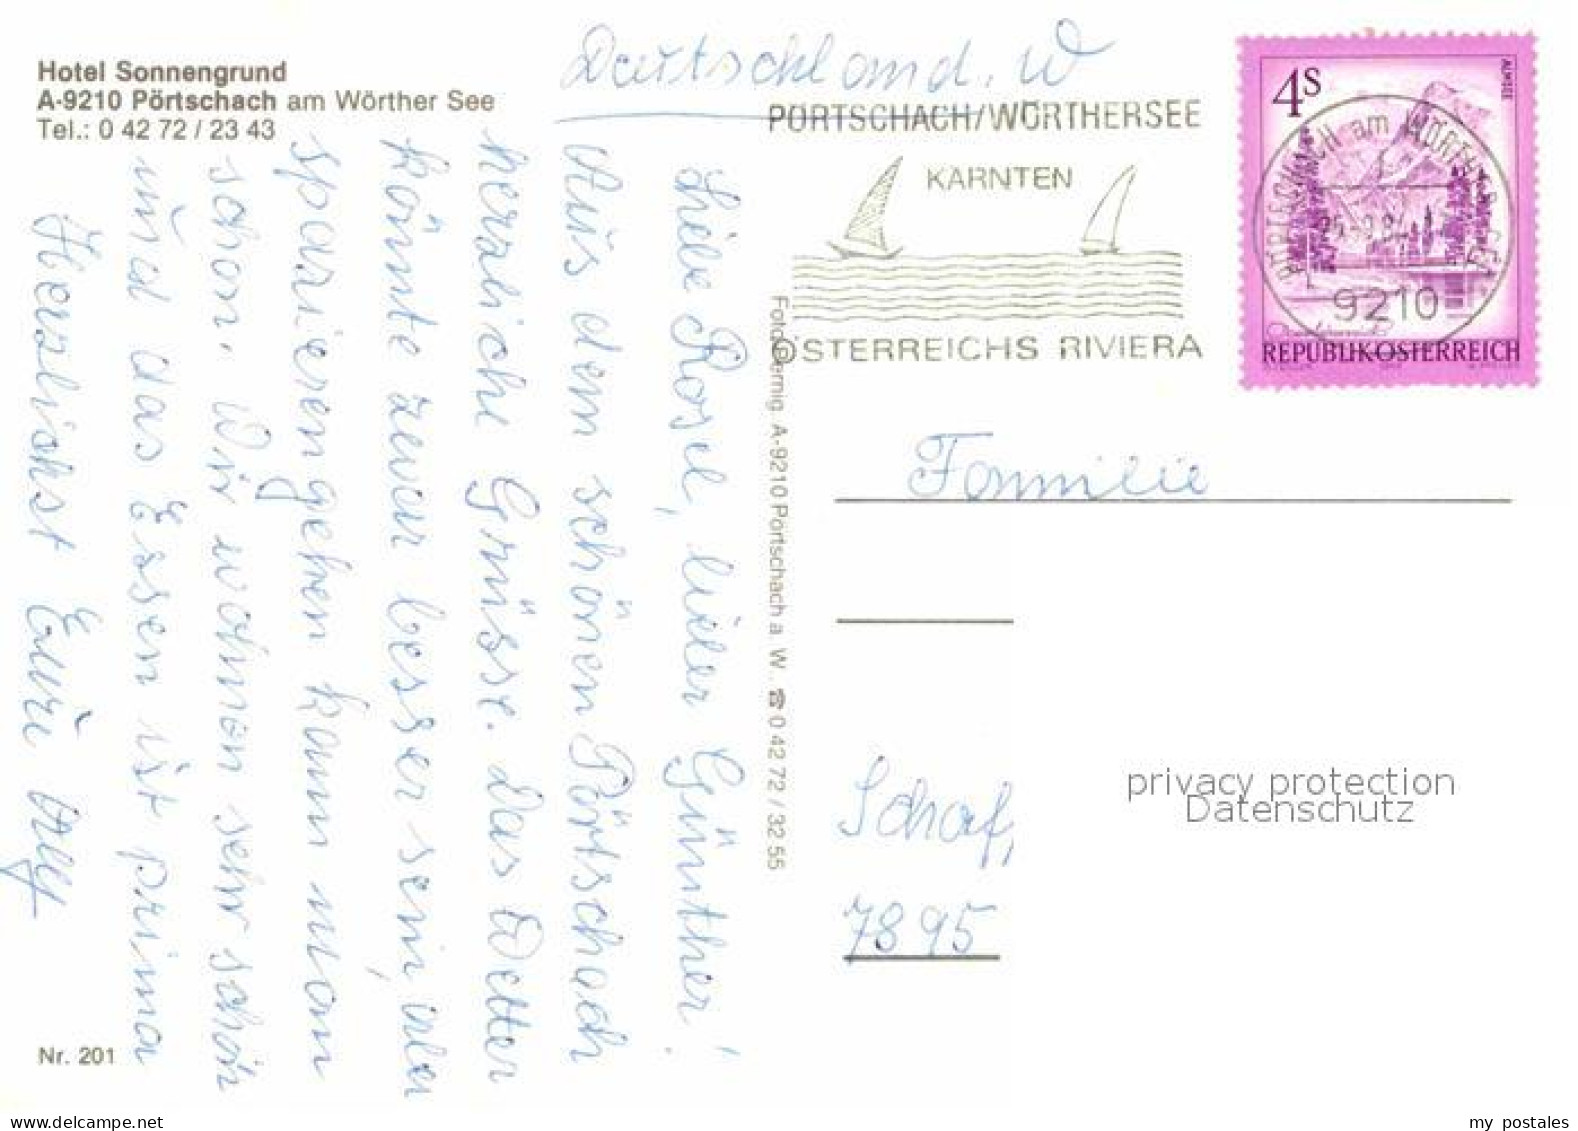 Hotel Sonnengrund
A-9210 Pörtschach am Wörther See
Tel.: 0 42 72 / 23 43
Deutschland. W
PÖRTSCHACH/WÖRTHERSEE
KÄRNTEN
ÖSTERREICHS RIVIERA
4 S
ALMSEE
PÖRTSCHACH am WÖRTHERSEE
9210
REPUBLIK ÖSTERREICH
Liebe Rosel, lieber Günther!
Aus dem schönen Pörtschach
herzliche Grüsse. Das Wetter
könnte zwar besser sein, aber
spazierengehen kann man
schon. Wir wohnen sehr schön
und das Essen ist prima
Herzlichst Eure
A-9210 Pörtschach a. W. ☎ 0 42 72 / 32 55
Familie
Schaf,
7895
privacy protection
Datenschutz
Nr. 201
www.delcampe.net
my_postales